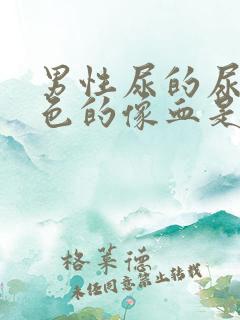 男性尿的尿
色的像血是
格莱德
未经同意禁止转载